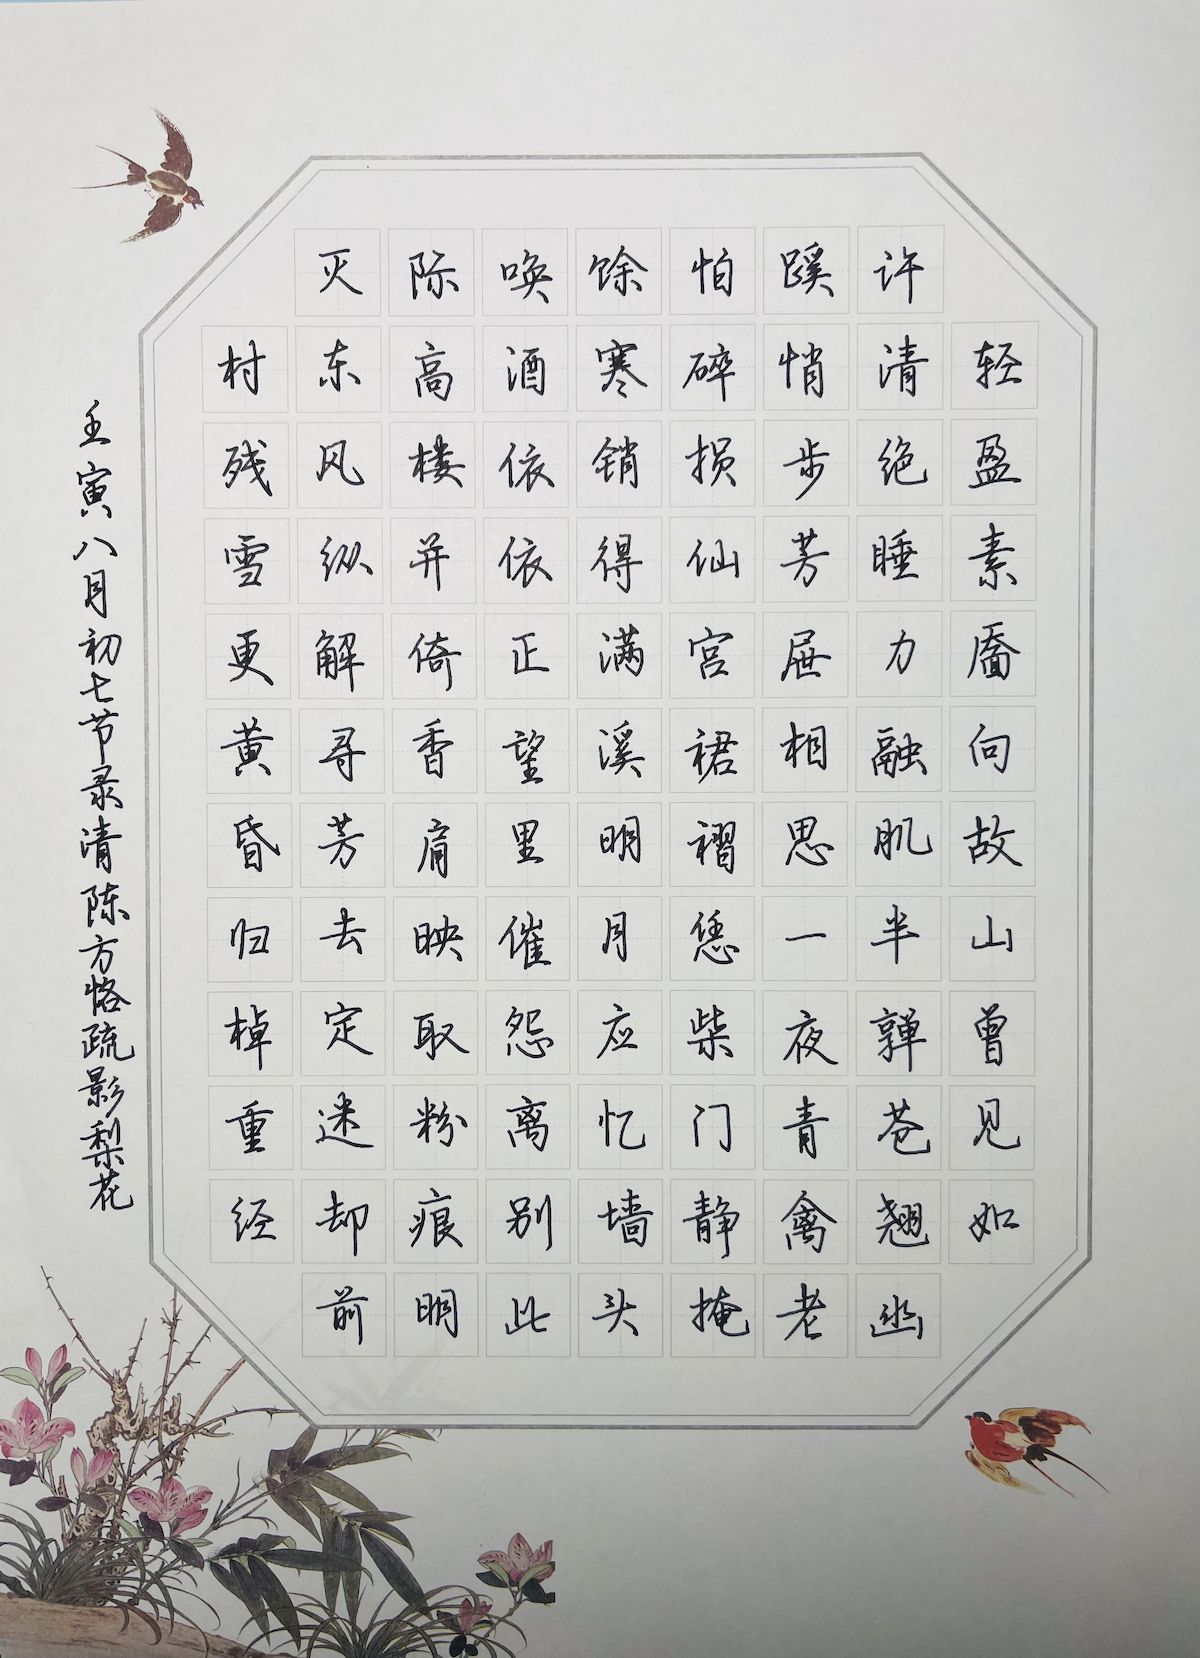 轻盈素靥向故山曾见如
许清绝睡力融肌半亸苍翘幽
蹊悄步芳屉相思一夜青禽老
怕碎损仙宫裙褶恁柴门静掩
馀寒销得满溪明月应忆墙头
唤酒依依正望里催怨离别此
际高楼并倚香肩映取粉痕明
灭东风纵解寻芳去定迷却前
村残雪更黄昏归棹重经
壬寅八月初七节录清陈方恪疏影梨花